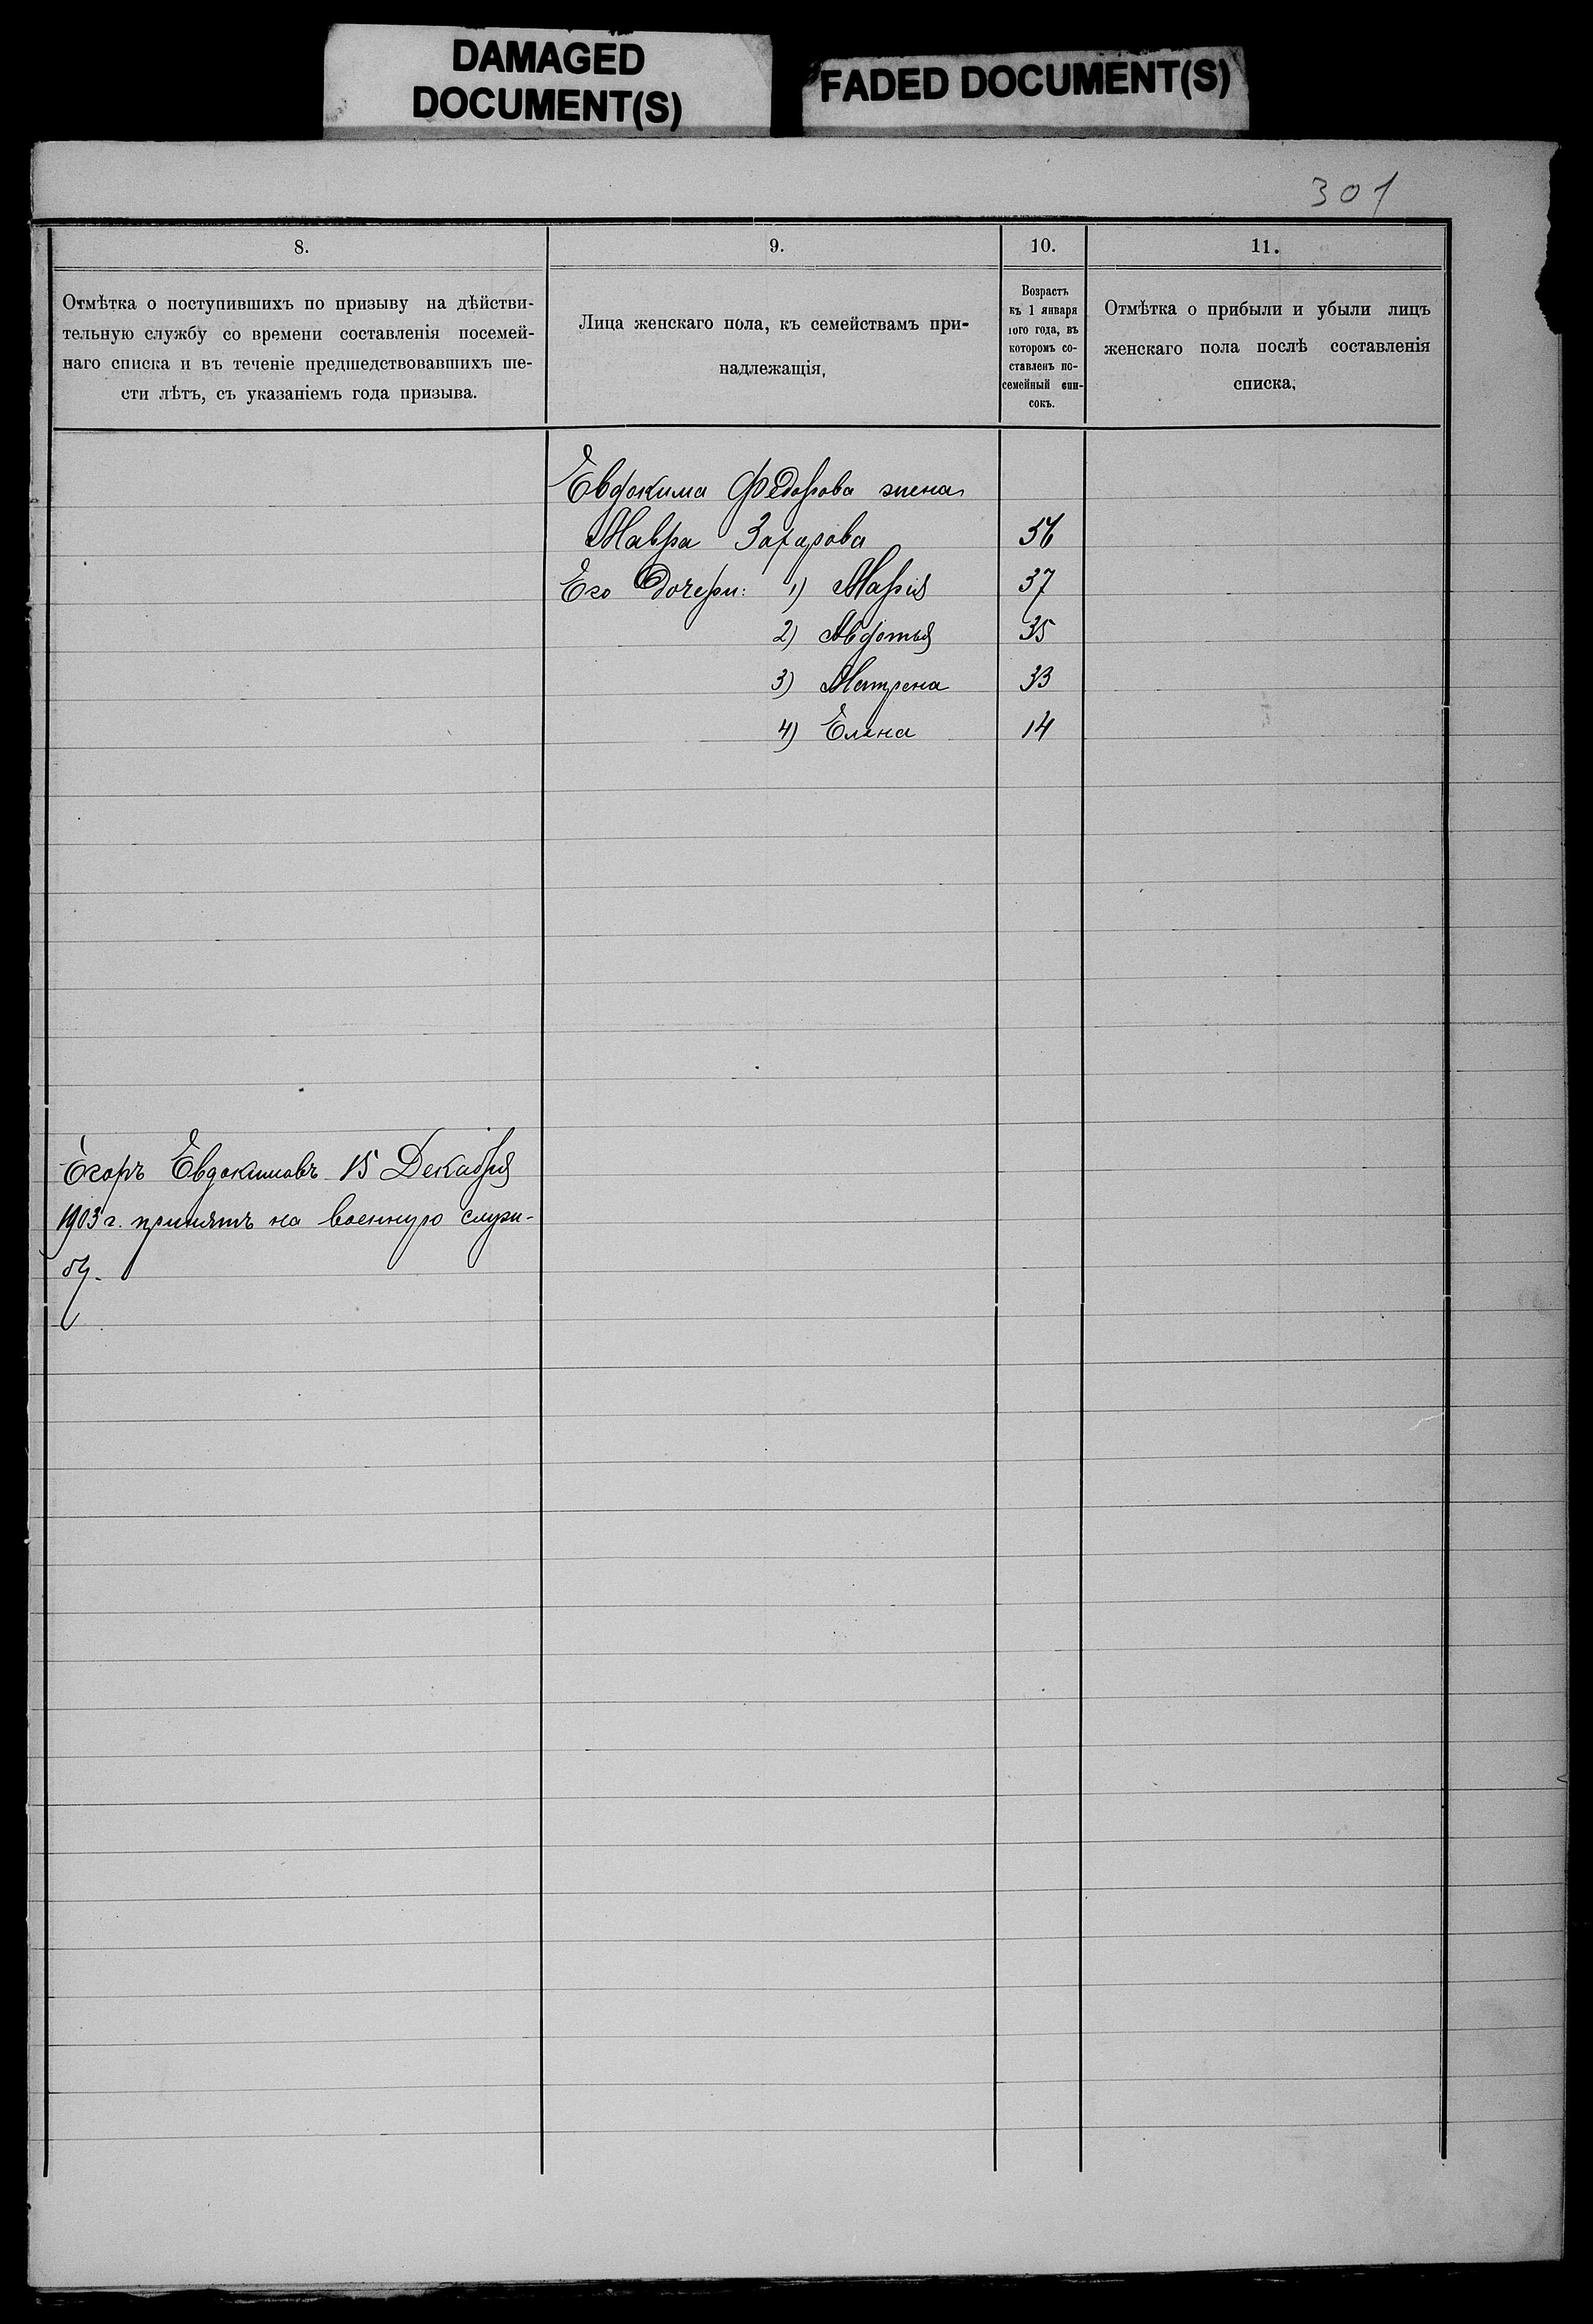 DAMAGED
DOCUMENT(S)
FADED DOCUMENT(S)
301
8.
9.
10.
11.
Отмѣтка о поступившихъ по призыву на дѣйстви-
тельную службу со времени составленія посемей-
наго списка и въ теченіе предшедствовавшихъ ше-
сти лѣтъ, съ указаніемъ года призыва.
Лица женскаго пола, къ семействамъ при-
надлежащія,
Возрастъ
къ 1 января
того года, въ
которомъ со-
ставленъ по-
семейный спи-
сокъ.
Отмѣтка о прибыли и убыли лицъ
женскаго пола послѣ составленія
списка,
Евдокима Федорова жена
Мавра Захарова 56
Его дочери: 1) Марія 37
2) Авдотья 35
3) Матрена 33
4) Елена 14
Егоръ Евдокимовъ 15 Декабря
1903 г. принятъ на военную служ-
бу.